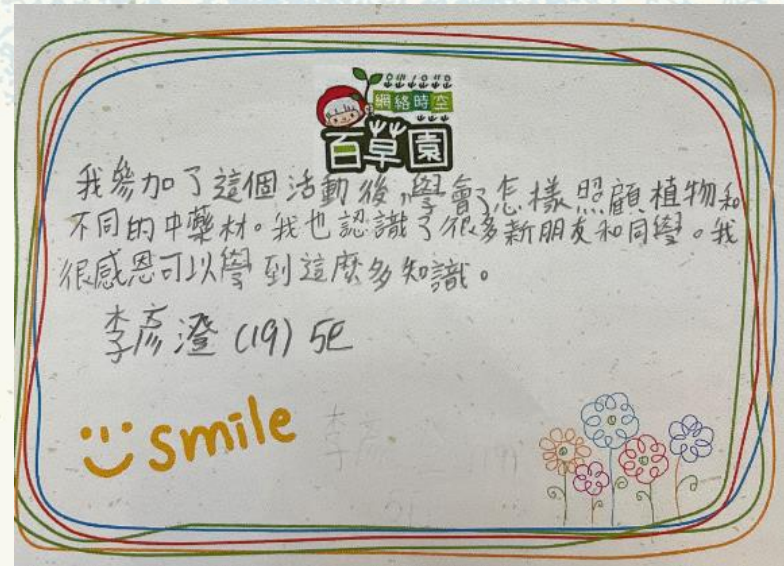 網絡時空
百草園
我參加了這個活動後,學會了怎樣照顧植物和
不同的中藥材。我也認識了很多新朋友和同學。我
很感恩可以學到這麼多知識。
李彥澄 (19) 5E
smile